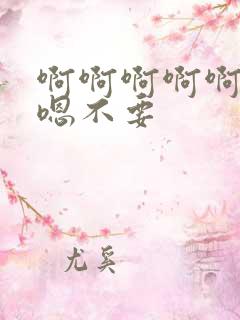 啊啊啊啊啊
嗯不要
尤奚